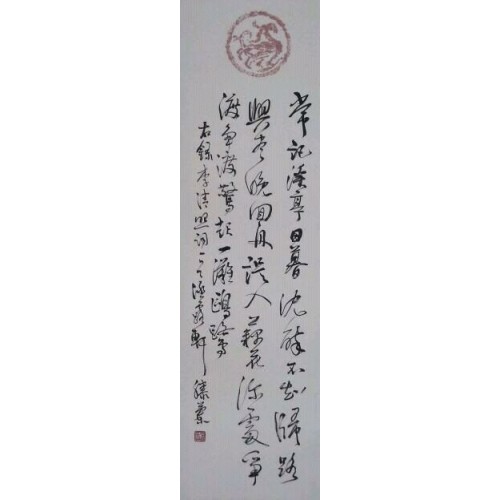 常記溪亭日暮沈醉不知歸路
興盡晚回舟誤入藕花深處爭
渡爭渡驚起一灘鷗鷺
右錄李清照詞軒